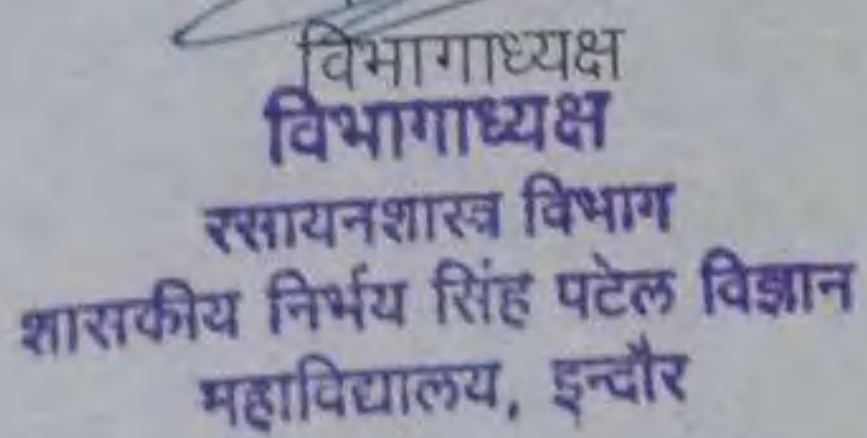 विभागाध्यक्ष
विभागाध्यक्ष
रसायनशास्त्र विभाग
शासकीय निर्भय सिंह पटेल विज्ञान
महाविद्यालय, इन्दौर